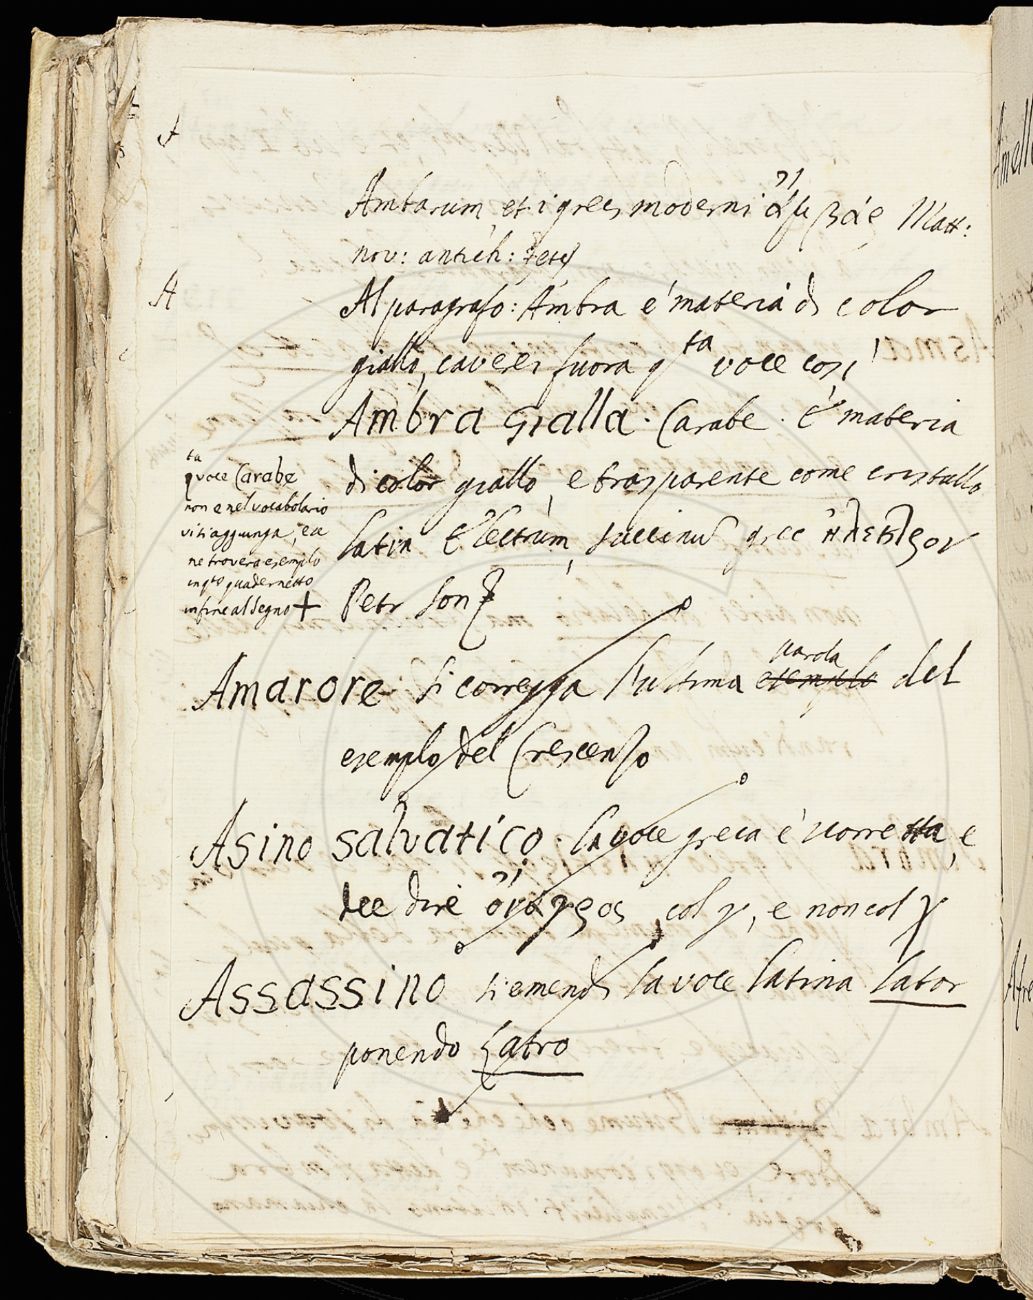 A
Ambarum et i greci moderni ἄμβαρ Matt:
nov: antich:
A
Al paragrafo: Ambra é materia di color
giallo, cavisi fuora q.ta voce così
Ambra Gialla. Carabe. È materia
di color giallo, e trasparente come cristallo
latin Electrum, succinu grec ἤλεκτρον
Petr Son
q.ta voce Carabe
non e nel vocabolario
vi si aggiunga, e se
ne troverà esemplo
in q.to quadernetto
in fine al segno +
Amarore si corregga l'ultima esemplo parola del
esemplo del Crescenzo
Asino salvatico. la voce greca è scorretta, e
dee dire ὄναγρος col γ, e non col χ
Assassino si emendi la voce latina lator
ponendo Latro